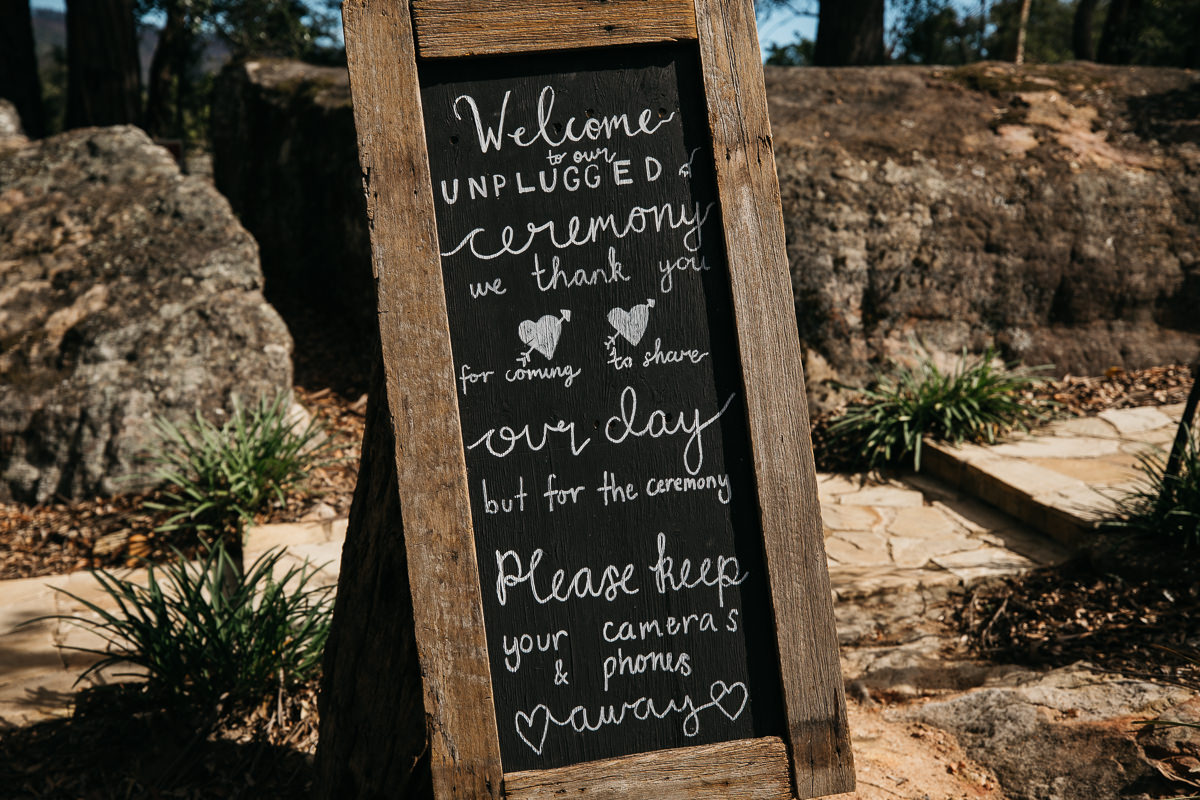 Welcome
to our
UNPLUGGED
ceremony
we thank you
for coming to share
our day
but for the ceremony
Please keep
your cameras
& phones
away